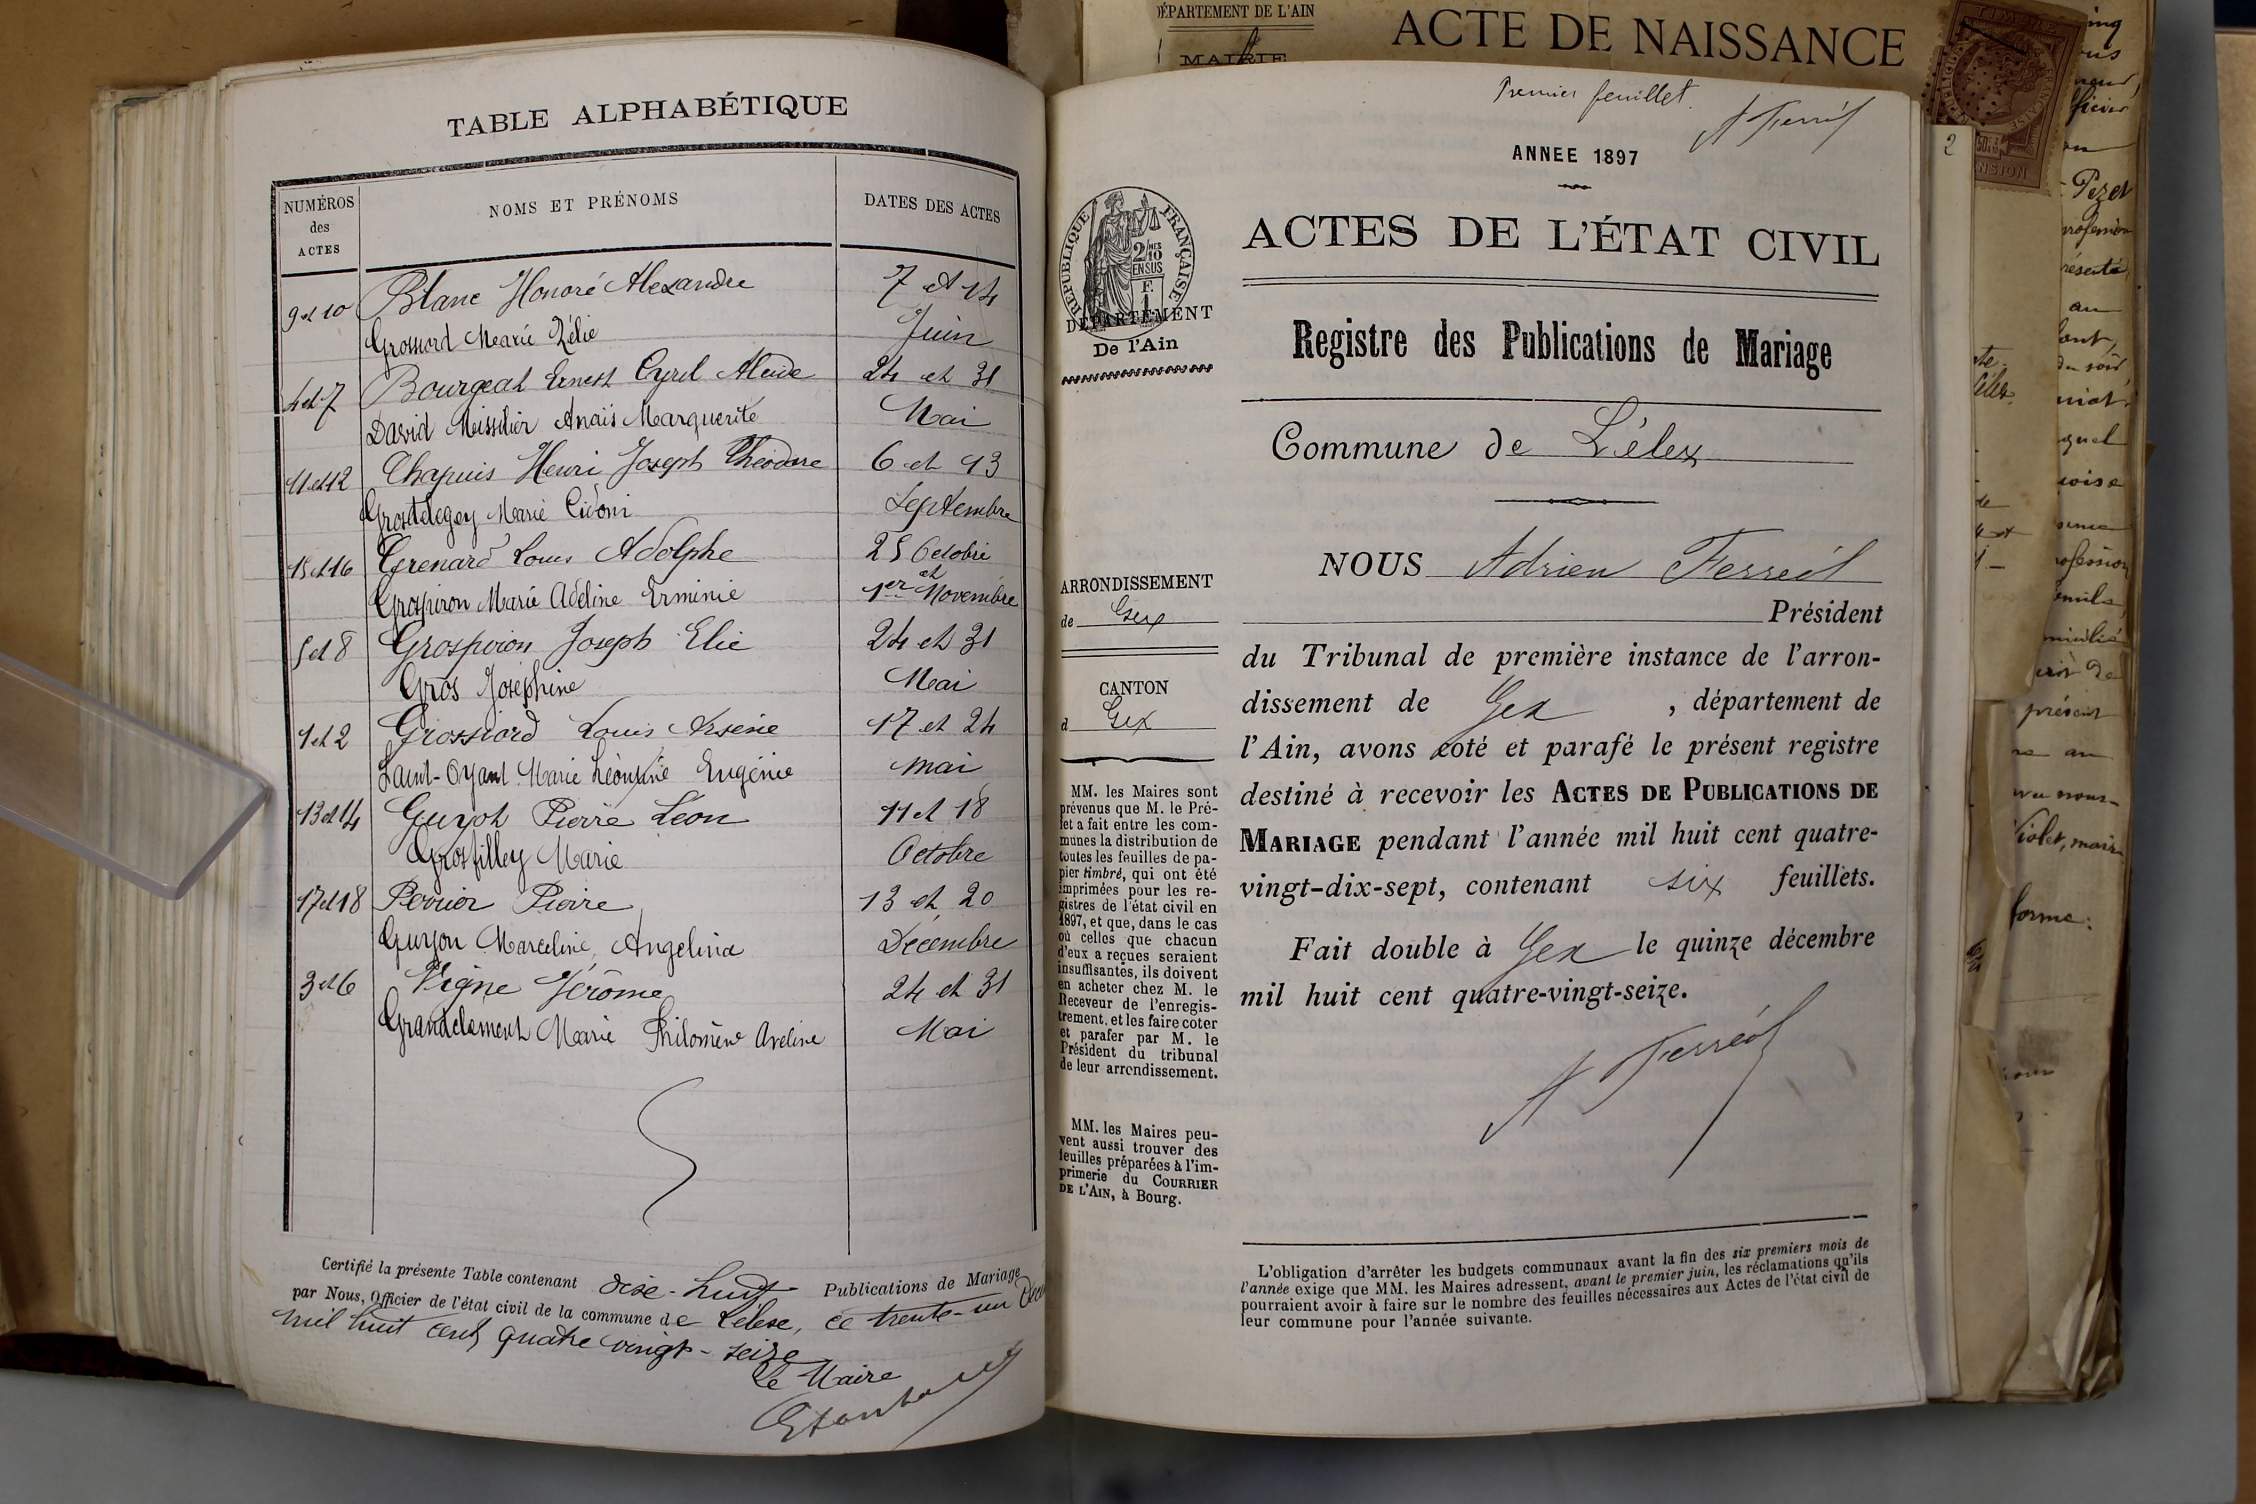 TABLE ALPHABÉTIQUE
NUMÉROS
des
ACTES
NOMS ET PRÉNOMS
DATES DES ACTES
9 et 10 Blanc Honoré Alexandre 7 et 14
Grossiord Marie Zélie Juin
4 et 7 Bourgeat Ernest Cyrel 24 et 31
David Missilier Anaïs Marguerite Mai
11 et 12 Chapuis Henri Joseph Théodore 6 et 13
Marie Septembre
15 et 16 Grenard Louis Adolphe 25 Octobre
et
Grospiron Marie Adeline Erminie 1er Novembre
5 et 8 Grospiron Joseph Elie 24 et 31
Gros Joséphine Mai
1 et 2 Grossiord Louis Arsène 17 et 24
Saint-Oyant Marie Léontine Eugénie mai
13 et 14 Guyot Pierre Léon 11 et 18
Grosfilley Marie Octobre
17 et 18 Pierre 13 et 20
Guyon Marceline Angelina Décembre
3 et 6 Vigne Jérôme 24 et 31
Grandclement Marie Philomène Aveline Mai
Certifié la présente Table contenant dix-huit Publications de Mariage
par Nous, Officier de l'état civil de la commune de Lélex, ce trente-un
mil huit cent quatre vingt-seize
Le Maire
DÉPARTEMENT DE L'AIN
MAIRIE
ACTE DE NAISSANCE
Premier feuillet.
A Ferréol
ANNEE 1897
RÉPUBLIQUE FRANÇAISE
2/10 MES
EN SUS
F.
1
DÉPARTEMENT
De l'Ain
ACTES DE L'ÉTAT CIVIL
Registre des Publications de Mariage
Commune de Lélex
ARRONDISSEMENT
de Gex
CANTON
d Gex
MM. les Maires sont
prévenus que M. le Pré-
fet a fait entre les com-
munes la distribution de
toutes les feuilles de pa-
pier timbré, qui ont été
imprimées pour les re-
gistres de l'état civil en
1897, et que, dans le cas
où celles que chacun
d'eux a reçues seraient
insuffisantes, ils doivent
en acheter chez M. le
Receveur de l'enregis-
trement, et les faire coter
et parafer par M. le
Président du tribunal
de leur arrondissement.
MM. les Maires peu-
vent aussi trouver des
feuilles préparées à l'im-
primerie du COURRIER
DE L'AIN, à Bourg.
NOUS Adrien Ferréol
Président
du Tribunal de première instance de l'arron-
dissement de Gex , département de
l'Ain, avons coté et parafé le présent registre
destiné à recevoir les ACTES DE PUBLICATIONS DE
MARIAGE pendant l'année mil huit cent quatre-
vingt-dix-sept, contenant six feuillets.
Fait double à Gex le quinze décembre
mil huit cent quatre-vingt-seize.
A Ferréol
L'obligation d'arrêter les budgets communaux avant la fin des six premiers mois de
l'année exige que MM. les Maires adressent, avant le premier juin, les réclamations qu'ils
pourraient avoir à faire sur le nombre des feuilles nécessaires aux Actes de l'état civil de
leur commune pour l'année suivante.
2
Pezet
au
présent
Violet, maire
forme: